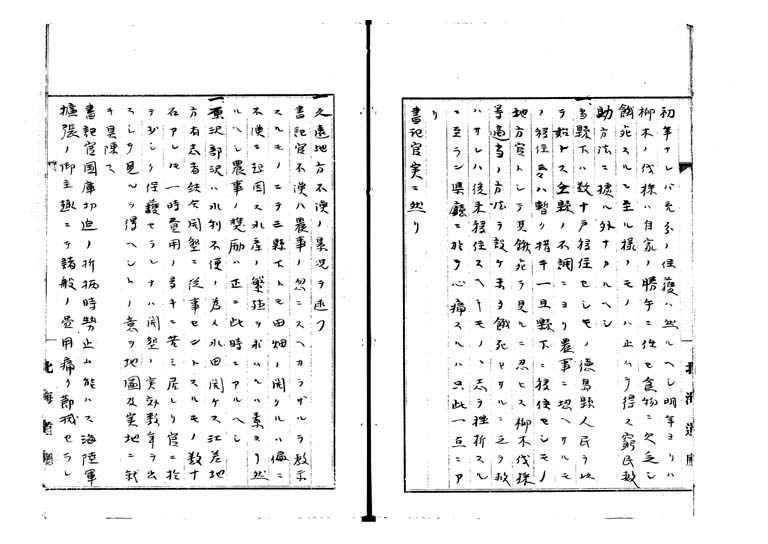 初年ナレバ充分ノ保護ハ然ルヘシ明年ヨリハ
柳木ノ伐採ハ自家ノ勝手ニ任セ食物ニ欠乏シ
餓死スルニ至ル様ノモノハ止ムヲ得ス窮民救
助方法ニ據ル外ナカルヘシ
当縣下ハ数十戸移住セシモノ徳島縣人民ヲ以
ラ始トス全縣ノ不調ニヨリ農事ニ堪ヘサルモ
ノ移住云々ハ暫ク措キ一旦縣下ニ移住セシモノ
地方官トシテ其餓死ヲ見ルニ忍ヒス柳木伐採
等適当ノ方法ヲ設ケ
ハサレハ後来移住スヘキモノハ志ヲ挫折スル
ニ至ラン県廳ニ於テ心痛スルハ只此一点ニア
リ
書記官実ニ然リ
一久遠地方不漁ノ景況ヲ述フ
書記官不漁ハ農事ノ忽ニスヘカラサルヲ教示
スルモノニテ三縣下トモ田畑ノ開クルハ偏ニ
不漁ニ起因ス水産ノ繁殖ヲ求ムルハ素ヨリ然
ルヘシ農事ノ奨励ハ正ニ此時ニアルヘシ
一厚沢部沢ハ水利不便ノ為メ水田開ケス江差地
方有志者結合開墾ニ従事セントスルモノ数十
名アレトモ一時費用ノ多キニ苦ミ居レリ官ニ於
テ少シク保護セラレナハ開墾ノ実効数年ヲ出
スシテ見ルヲ得ヘシトノ意ヲ地圖及実地ニ就
キ具陳ス
書記官国庫切迫ノ折柄時勢止ム能ハス海陸軍
擴張ノ御主趣ニテ諸般ノ費用痛ク節減セラレ
北海道廳
北海道廳